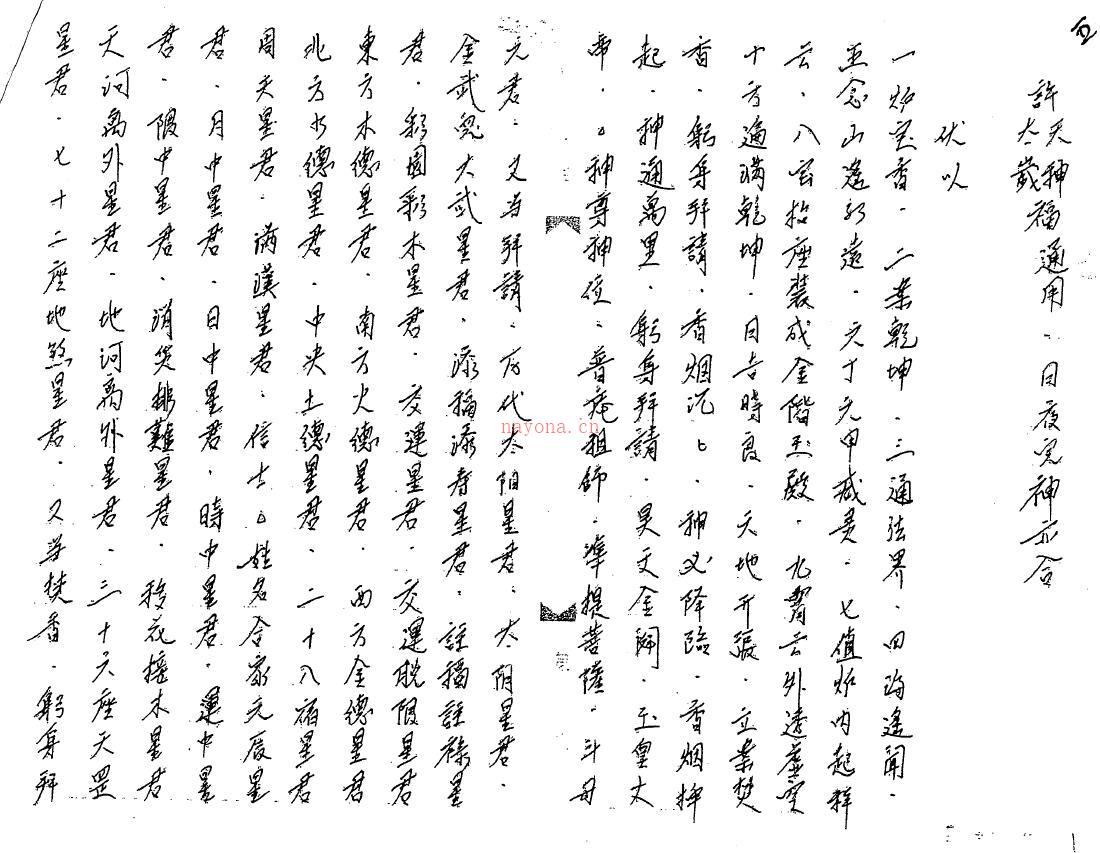 五
許天神
太歲福通用·日夜完神亦合
伏以
一炉宝香·二業乾坤·三通法界·四海遙聞·
五念山遙路遠·六丁六甲咸灵·七值炉内起祥
云·八宝抬座裝成金階玉殿·九霄云外透虛空
十方遍滿乾坤·日吉時良·天地开張·立案焚
香·躬身拜請·香烟沉沉·神必降臨·香烟捧
起·神通萬里·躬身拜請·昊天金闕·玉皇大
帝·神尊神位·普庵祖師·準提菩薩·斗母
元君·又与拜請·历代太阳星君·太阴星君·
金武兔大武星君·添福添寿星君·註福註祿星
君·移園移木星君·交運星君·交運脫限星君
東方木德星君·南方火德星君·西方金德星君
北方水德星君·中央土德星君·二十八宿星君
周天星君·滿漢星君·信士姓名合家元辰星
君·月中星君·日中星君·時中星君·運中星
君·限中星君·消災排難星君·移花接木星君
天河离外星君·地河离外星君·三十六座天罡
星君·七十二座地煞星君·又举焚香·躬身拜
nayona.cn